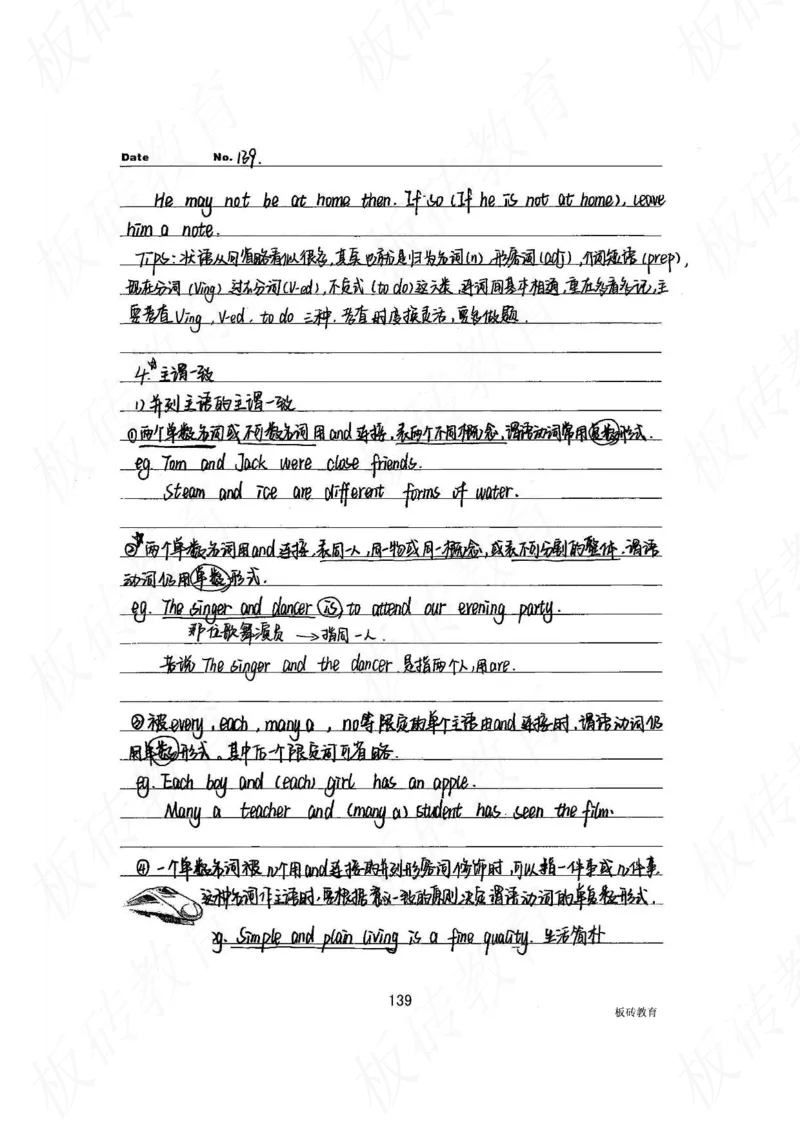 Date No. 139.
He may not be at home then. If so (If he is not at home), leave
him a note.
Tips: 状语从句省略看似很多,其实也就是归为名词(n),形容词(adj),介词短语(prep),
现在分词(Ving) 过去分词(V-ed),不定式(to do)这六类,词间基本相通,重在多看多记,主
要考查Ving, V-ed, to do 三种.考查时变换灵活,要多做题.
4.☆主谓一致
1) 并列主语的主谓一致
①两个单数名词或不可数名词用and连接,表两个不同概念,谓语动词常用复数形式.
eg. Tom and Jack were close friends.
Steam and ice are different forms of water.
②☆两个单数名词用and连接,表同一人,同一物或同一概念,或表不可分割的整体.谓语
动词仍用单数形式.
eg. The singer and dancer is to attend our evening party.
那位歌舞演员 → 指同一人.
若说 The singer and the dancer 是指两个人,用are.
③被every, each, many a, no等限定的单个主语由and连接时,谓语动词仍
用单数形式。其中后一个限定词可省略.
eg. Each boy and (each) girl has an apple.
Many a teacher and (many a) student has seen the film.
④一个单数名词被几个用and连接的并列形容词修饰时,可以指一件事或几件事.
这种名词作主语时,要根据意义一致的原则决定谓语动词的单复数形式.
eg. Simple and plain living is a fine quality. 生活简朴
139
板砖教育